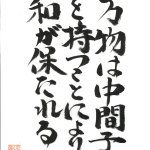 万物は中間子
を持つことにより
和が保たれる